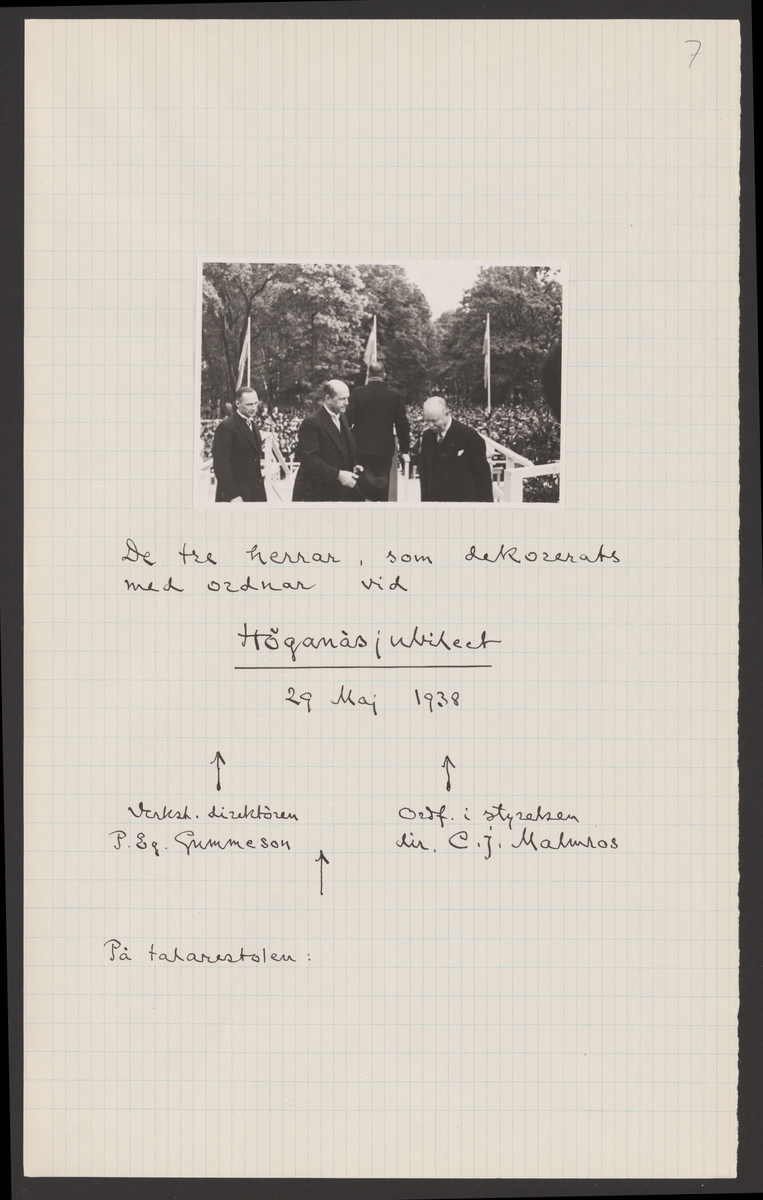 7
De tre herrar, som dekorerats
med ordnar vid
Höganäsjubileet
29 Maj 1938
↑ ↑
Verkst. direktören Ordf. i styrelsen
P. Eg. Gummeson dir. C. J. Malmros
↑
På talarestolen: